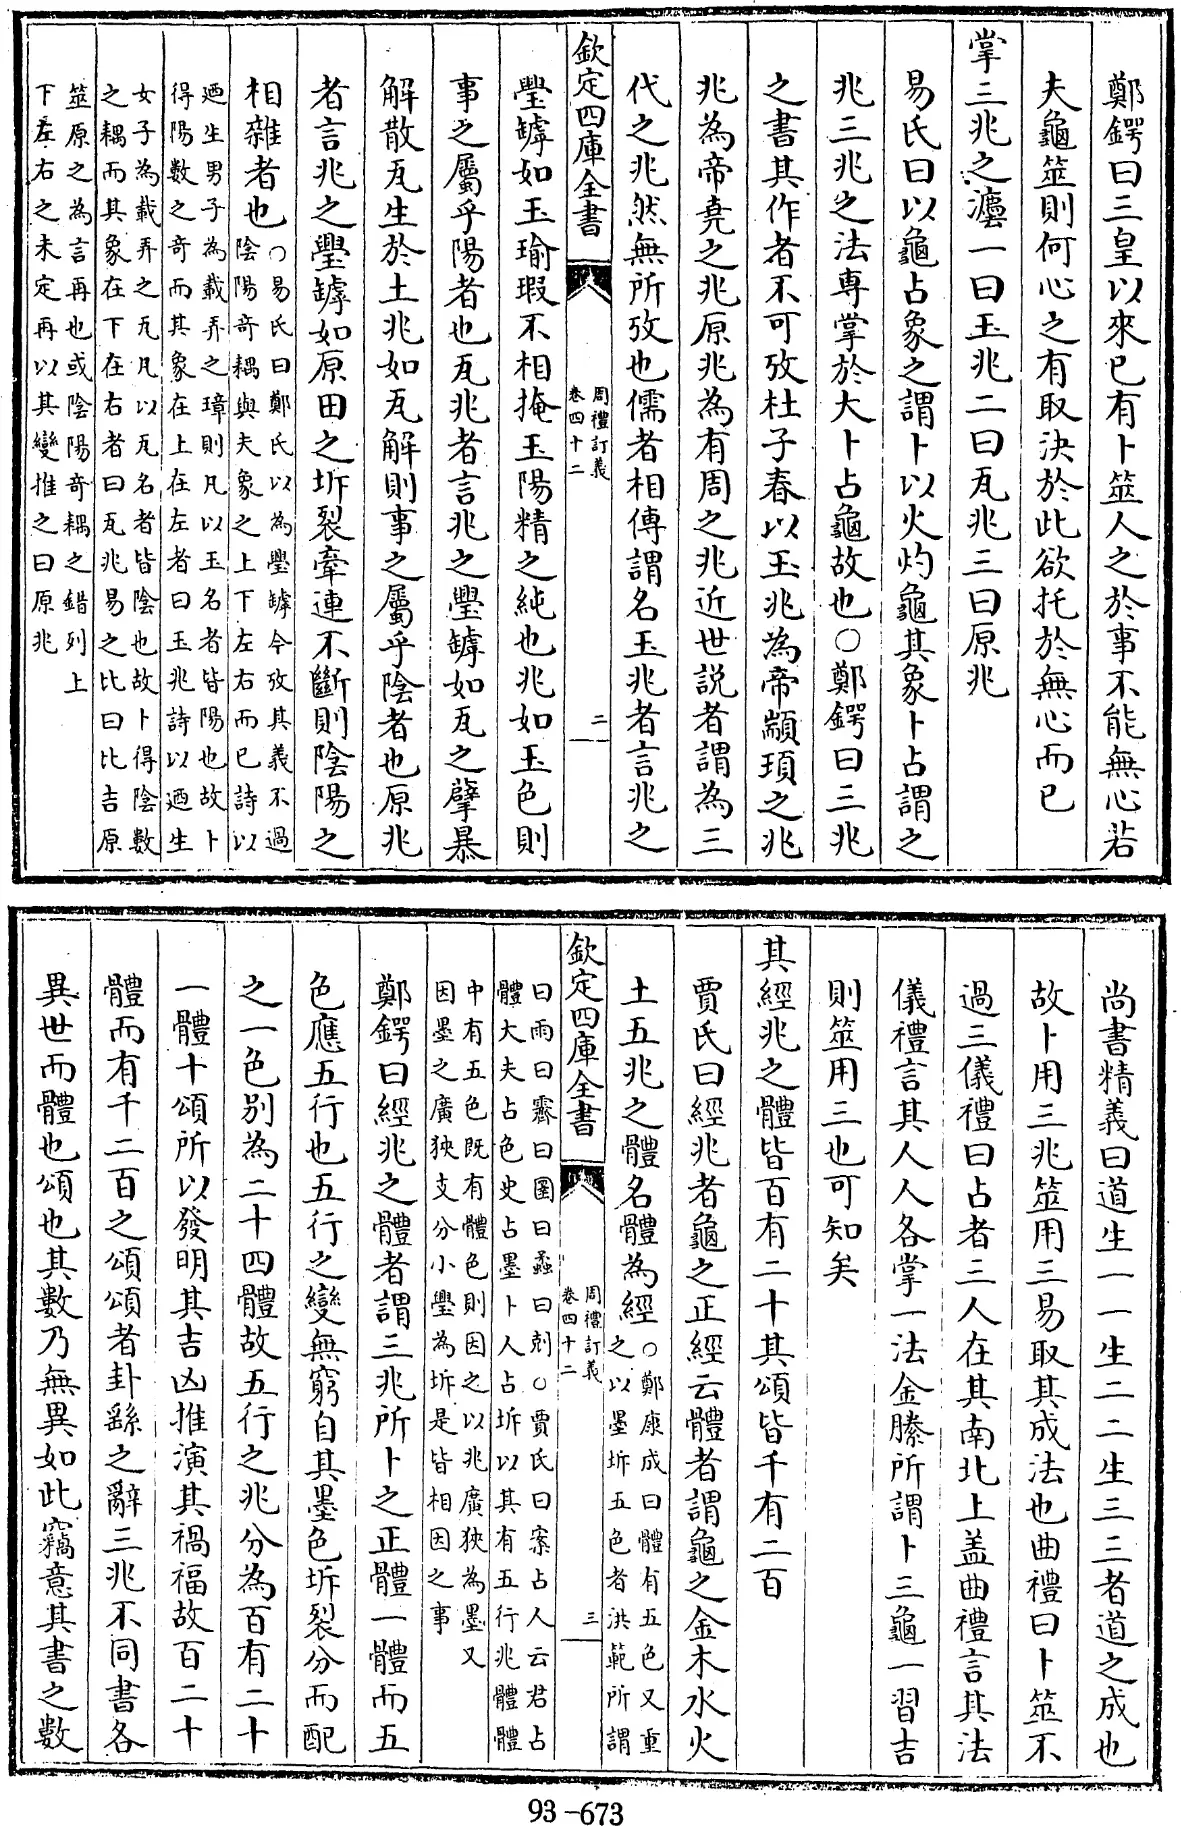 鄭鍔曰三皇以來已有卜筮人之於事不能無心若
夫龜筮則何心之有取決於此欲托於無心而已
掌三兆之灋一曰玉兆二曰瓦兆三曰原兆
易氏曰以龜占象之謂卜以火灼龜其象卜占謂之
兆三兆之法專掌於大卜占龜故也○鄭鍔曰三兆
之書其作者不可攷杜子春以玉兆為帝顓頊之兆
兆為帝堯之兆原兆為有周之兆近世説者謂為三
代之兆然無所攷也儒者相傳謂名玉兆者言兆之
欽定四庫全書
周禮訂義
卷四十二
二
璺罅如玉瑜瑕不相掩玉陽精之純也兆如玉色則
事之屬乎陽者也瓦兆者言兆之璺罅如瓦之㩉暴
解散瓦生於土兆如瓦解則事之屬乎陰者也原兆
者言兆之璺罅如原田之坼裂牽連不斷則陰陽之
相雜者也○易氏曰鄭氏以為璺罅今攷其義不過
陰陽奇耦與夫象之上下左右而已詩以
廼生男子為載弄之璋則凡以玉名者皆陽也故卜
得陽數之奇而其象在上在左者曰玉兆詩以廼生
女子為載弄之瓦凡以瓦名者皆陰也故卜得陰數
之耦而其象在下在右者曰瓦兆易之比曰比吉原
筮原之為言再也或陰陽奇耦之錯列上
下左右之未定再以其變推之曰原兆
尚書精義曰道生一一生二二生三三者道之成也
故卜用三兆筮用三易取其成法也曲禮曰卜筮不
過三儀禮曰占者三人在其南北上盖曲禮言其法
儀禮言其人人各掌一法金縢所謂卜三龜一習吉
則筮用三也可知矣
其經兆之體皆百有二十其頌皆千有二百
賈氏曰經兆者龜之正經云體者謂龜之金木水火
土五兆之體名體為經○鄭康成曰體有五色又重
之以墨坼五色者洪範所謂
欽定四庫全書
周禮訂義
卷四十二
三
曰雨曰霽曰圛曰蟊曰尅○賈氏曰案占人云君占
體大夫占色史占墨卜人占坼以其有五行兆體體
中有五色既有體色則因之以兆廣狹為墨又
因墨之廣狹支分小璺為坼是皆相因之事
鄭鍔曰經兆之體者謂三兆所卜之正體一體而五
色應五行也五行之變無窮自其墨色坼裂分而配
之一色別為二十四體故五行之兆分為百有二十
一體十頌所以發明其吉凶推演其禍福故百二十
體而有千二百之頌頌者卦繇之辭三兆不同書各
異世而體也頌也其數乃無異如此竊意其書之數
93-673